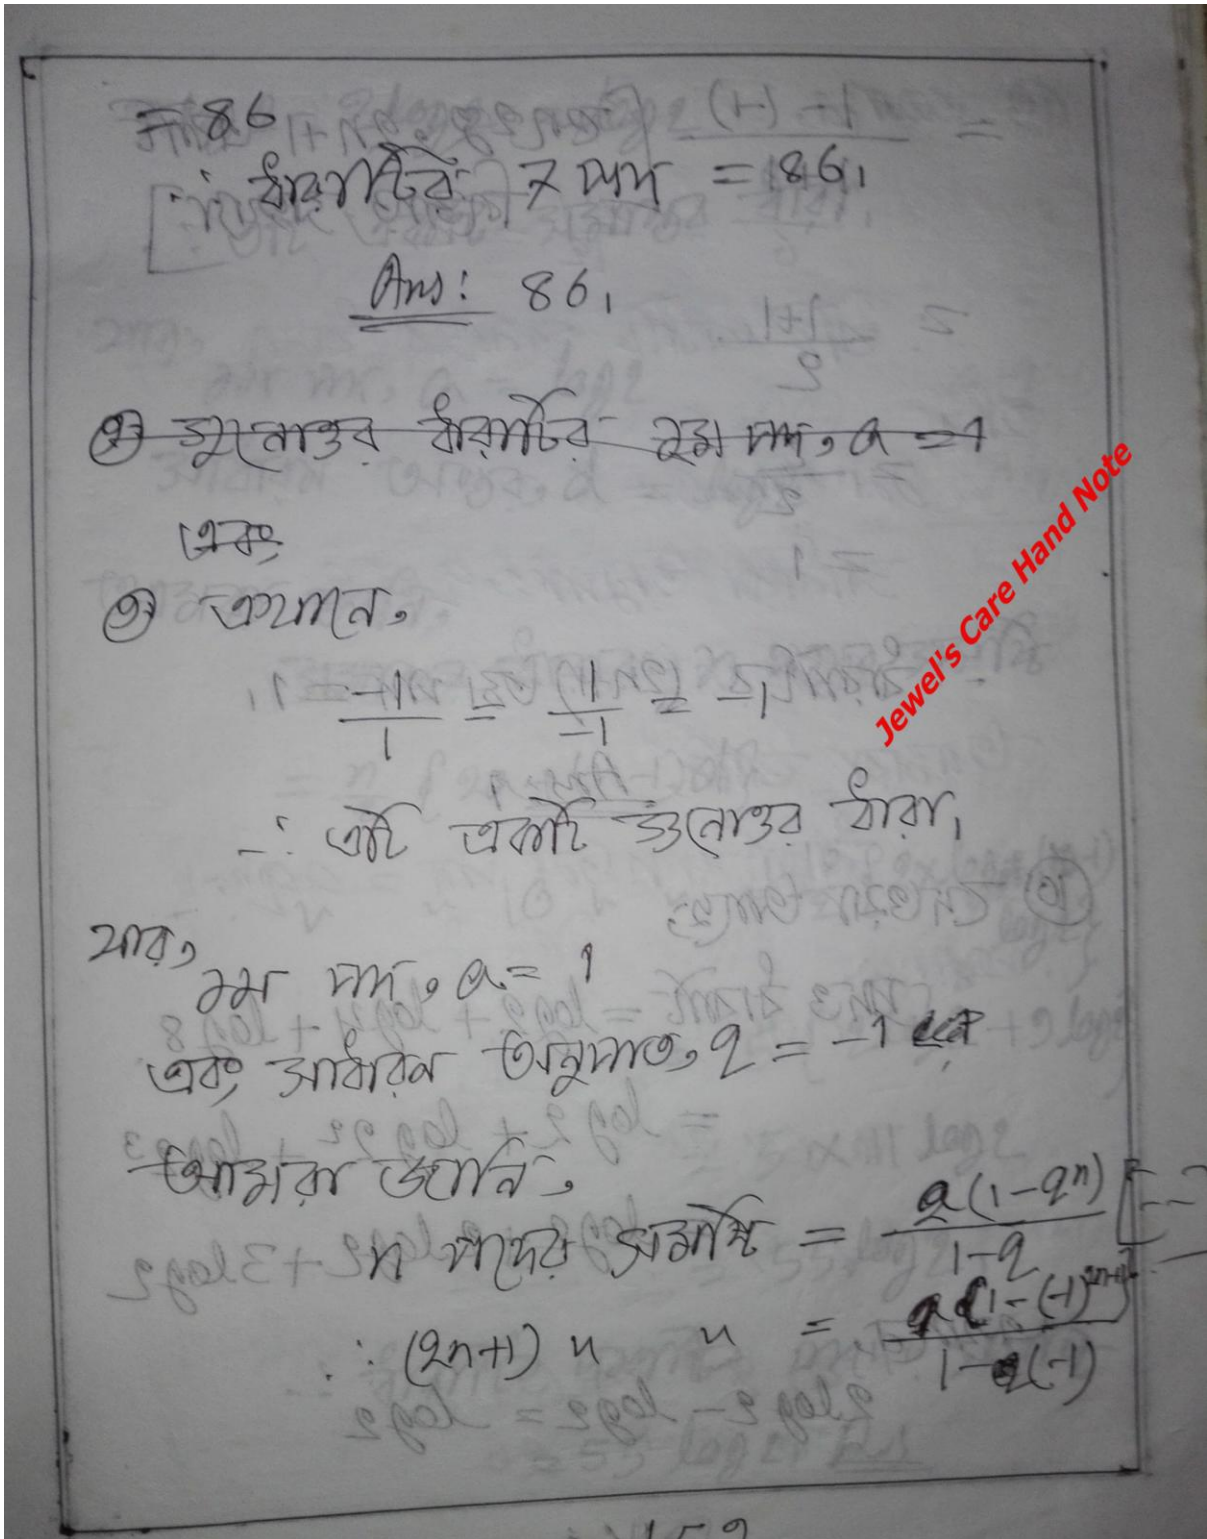 = 86
∴ ধারাটির ৭ পদ = 86।
Ans: 86।
গুনোত্তর ধারাটির ১ম পদ, a = 1
এবং
এখানে,
-1/1 = 1/-1 = -1
∴ এটি একটি গুনোত্তর ধারা।
যার,
১ম পদ, a = 1
এবং সাধারন অনুপাত, q = -1
আমরা জানি,
n পদের সমষ্টি = a(1-q^n)/1-q
∴ (2n+1) " " = (1-(-1)^2n+1)/1-(-1)
Jewel's Care Hand Note